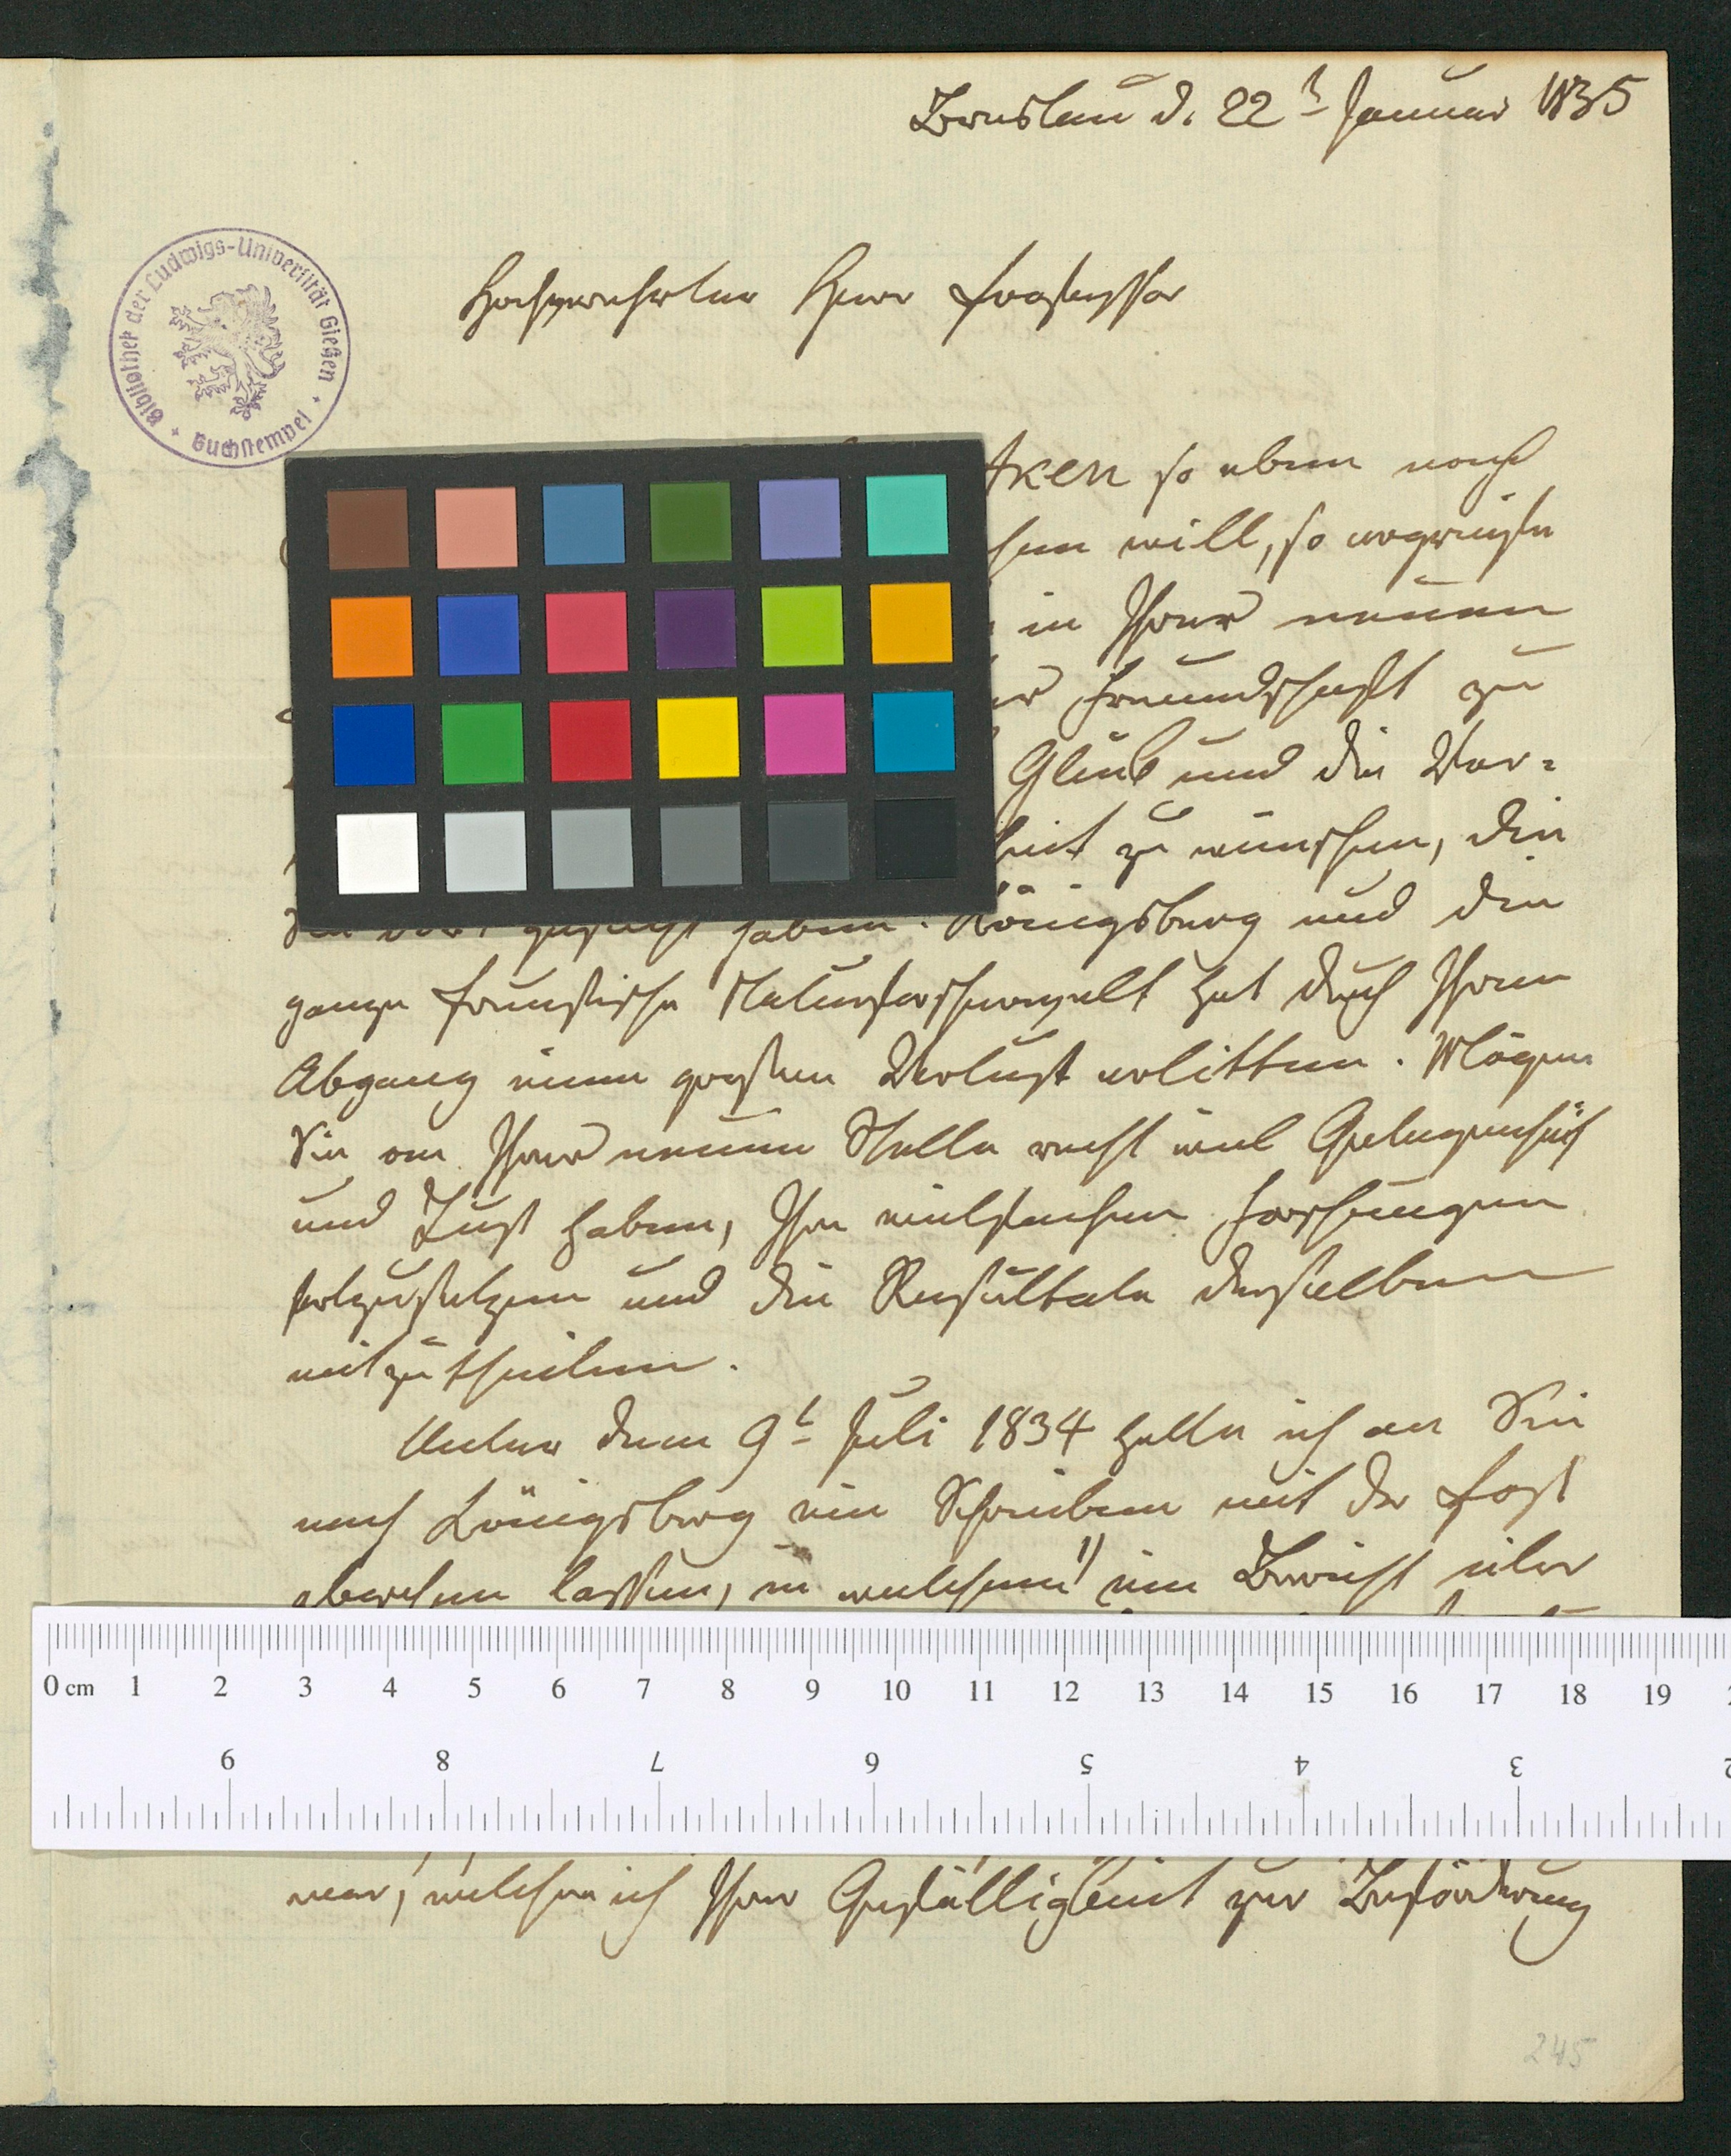 Breslau d. 22t Januar 1835
Bibliothek der Ludwigs-Universität Gießen
Buchstempel
Hochgeehrter Herr Professor
so eben nach
will, so ergreife
in Ihrer neuen
Freundschaft zu
Glück und die Vor-
zu wünschen, die
haben. Königsberg und die
ganze preußische Naturforscherwelt hat durch Ihren
Abgang einen großen Verlust erlitten. Mögen
Sie an Ihrer neuen Stelle recht viel Gelegenheit
und Lust haben, Ihre vielfachen Forschungen
fortzusetzen und die Resultate derselben
mitzutheilen.
Unter dem 9t Juli 1834 hatte ich an Sie
nach Königsberg ein Schreiben mit der Post
abgehen lassen, in welchem 1) ein Bericht über
0 cm 1 2 3 4 5 6 7 8 9 10 11 12 13 14 15 16 17 18 19
9 8 7 6 5 4 3 2
war, welchen ich Ihrer Gefälligkeit zur Beförderung
245